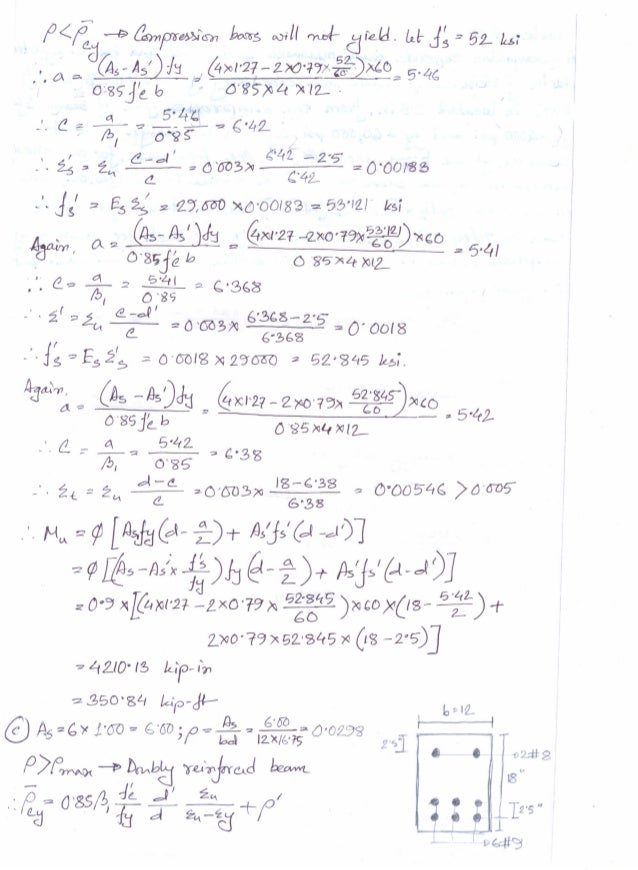 ρ < ρ̄cy → Compression bars will not yield. let f's = 52 ksi
∴ a = (As - As') fy / 0.85 f'c b = (4×1.27 - 2×0.79×52/60)×60 / 0.85×4×12 = 5.46
∴ C = a/β1 = 5.46/0.85 = 6.42
∴ ε's = εu (c-d')/c = 0.003 × (6.42 - 2.5)/6.42 = 0.00183
∴ fs' = Es εs' = 29,000 × 0.00183 = 53.121 ksi
Again, a = (As - As') fy / 0.85 f'c b = (4×1.27 - 2×0.79×53.121/60)×60 / 0.85×4×12 = 5.41
∴ C = a/β1 = 5.41/0.85 = 6.368
∴ ε' = εu (c-d')/c = 0.003 × (6.368 - 2.5)/6.368 = 0.0018
∴ f's = Es ε's = 0.0018 × 29000 = 52.845 ksi.
Again, a = (As - As') fy / 0.85 f'c b = (4×1.27 - 2×0.79×52.845/60)×60 / 0.85×4×12 = 5.42
∴ C = a/β1 = 5.42/0.85 = 6.38
∴ εt = εu (d-c)/c = 0.003 × (18-6.38)/6.38 = 0.00546 > 0.005
∴ Mu = φ [As fy (d - a/2) + As' fs' (d-d')]
= φ [(As - As' × f's/fy) fy (d - a/2) + As' fs' (d-d')]
= 0.9 × [(4×1.27 - 2×0.79 × 52.845/60) × 60 × (18 - 5.42/2) +
2×0.79×52.845 × (18 - 2.5)]
= 4210.13 kip-in
= 350.84 kip-ft
(c) As = 6 × 1.00 = 6.00 ; ρ = As/bd = 6.00/12×16.75 = 0.0298
ρ > ρmax → Doubly reinforced beam
∴ ρ̄cy = 0.85 β1 f'c/fy d'/d εu/(εu-εy) + ρ'
b=12
2.5"
2#8
18"
2.5"
6#9